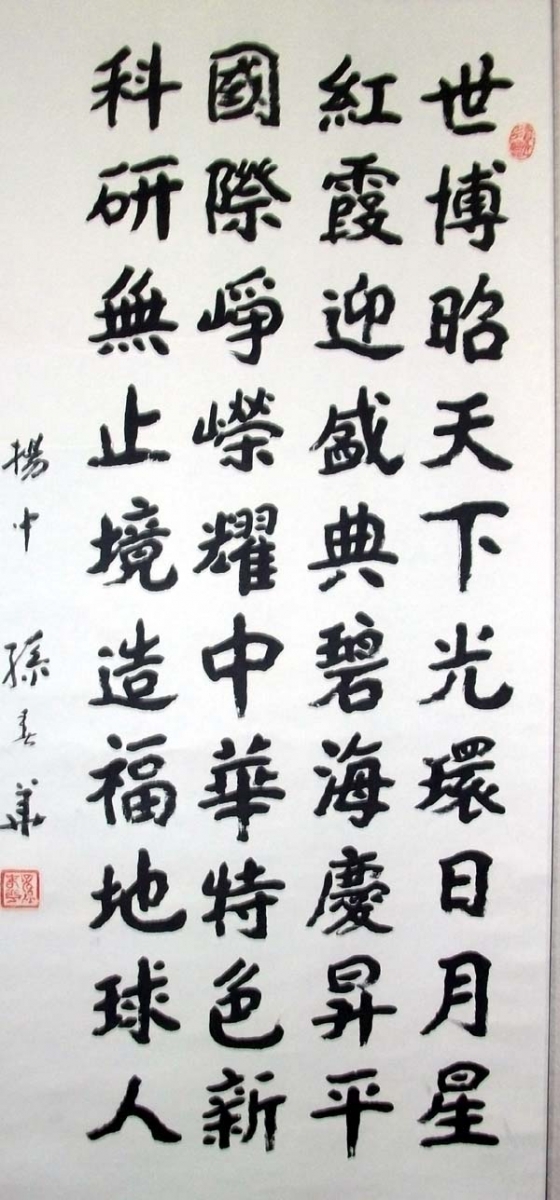 世博昭天下光環日月星
紅霞迎盛典碧海慶昇平
國際崢嶸耀中華特色新
科研無止境造福地球人
揚中 孫春華